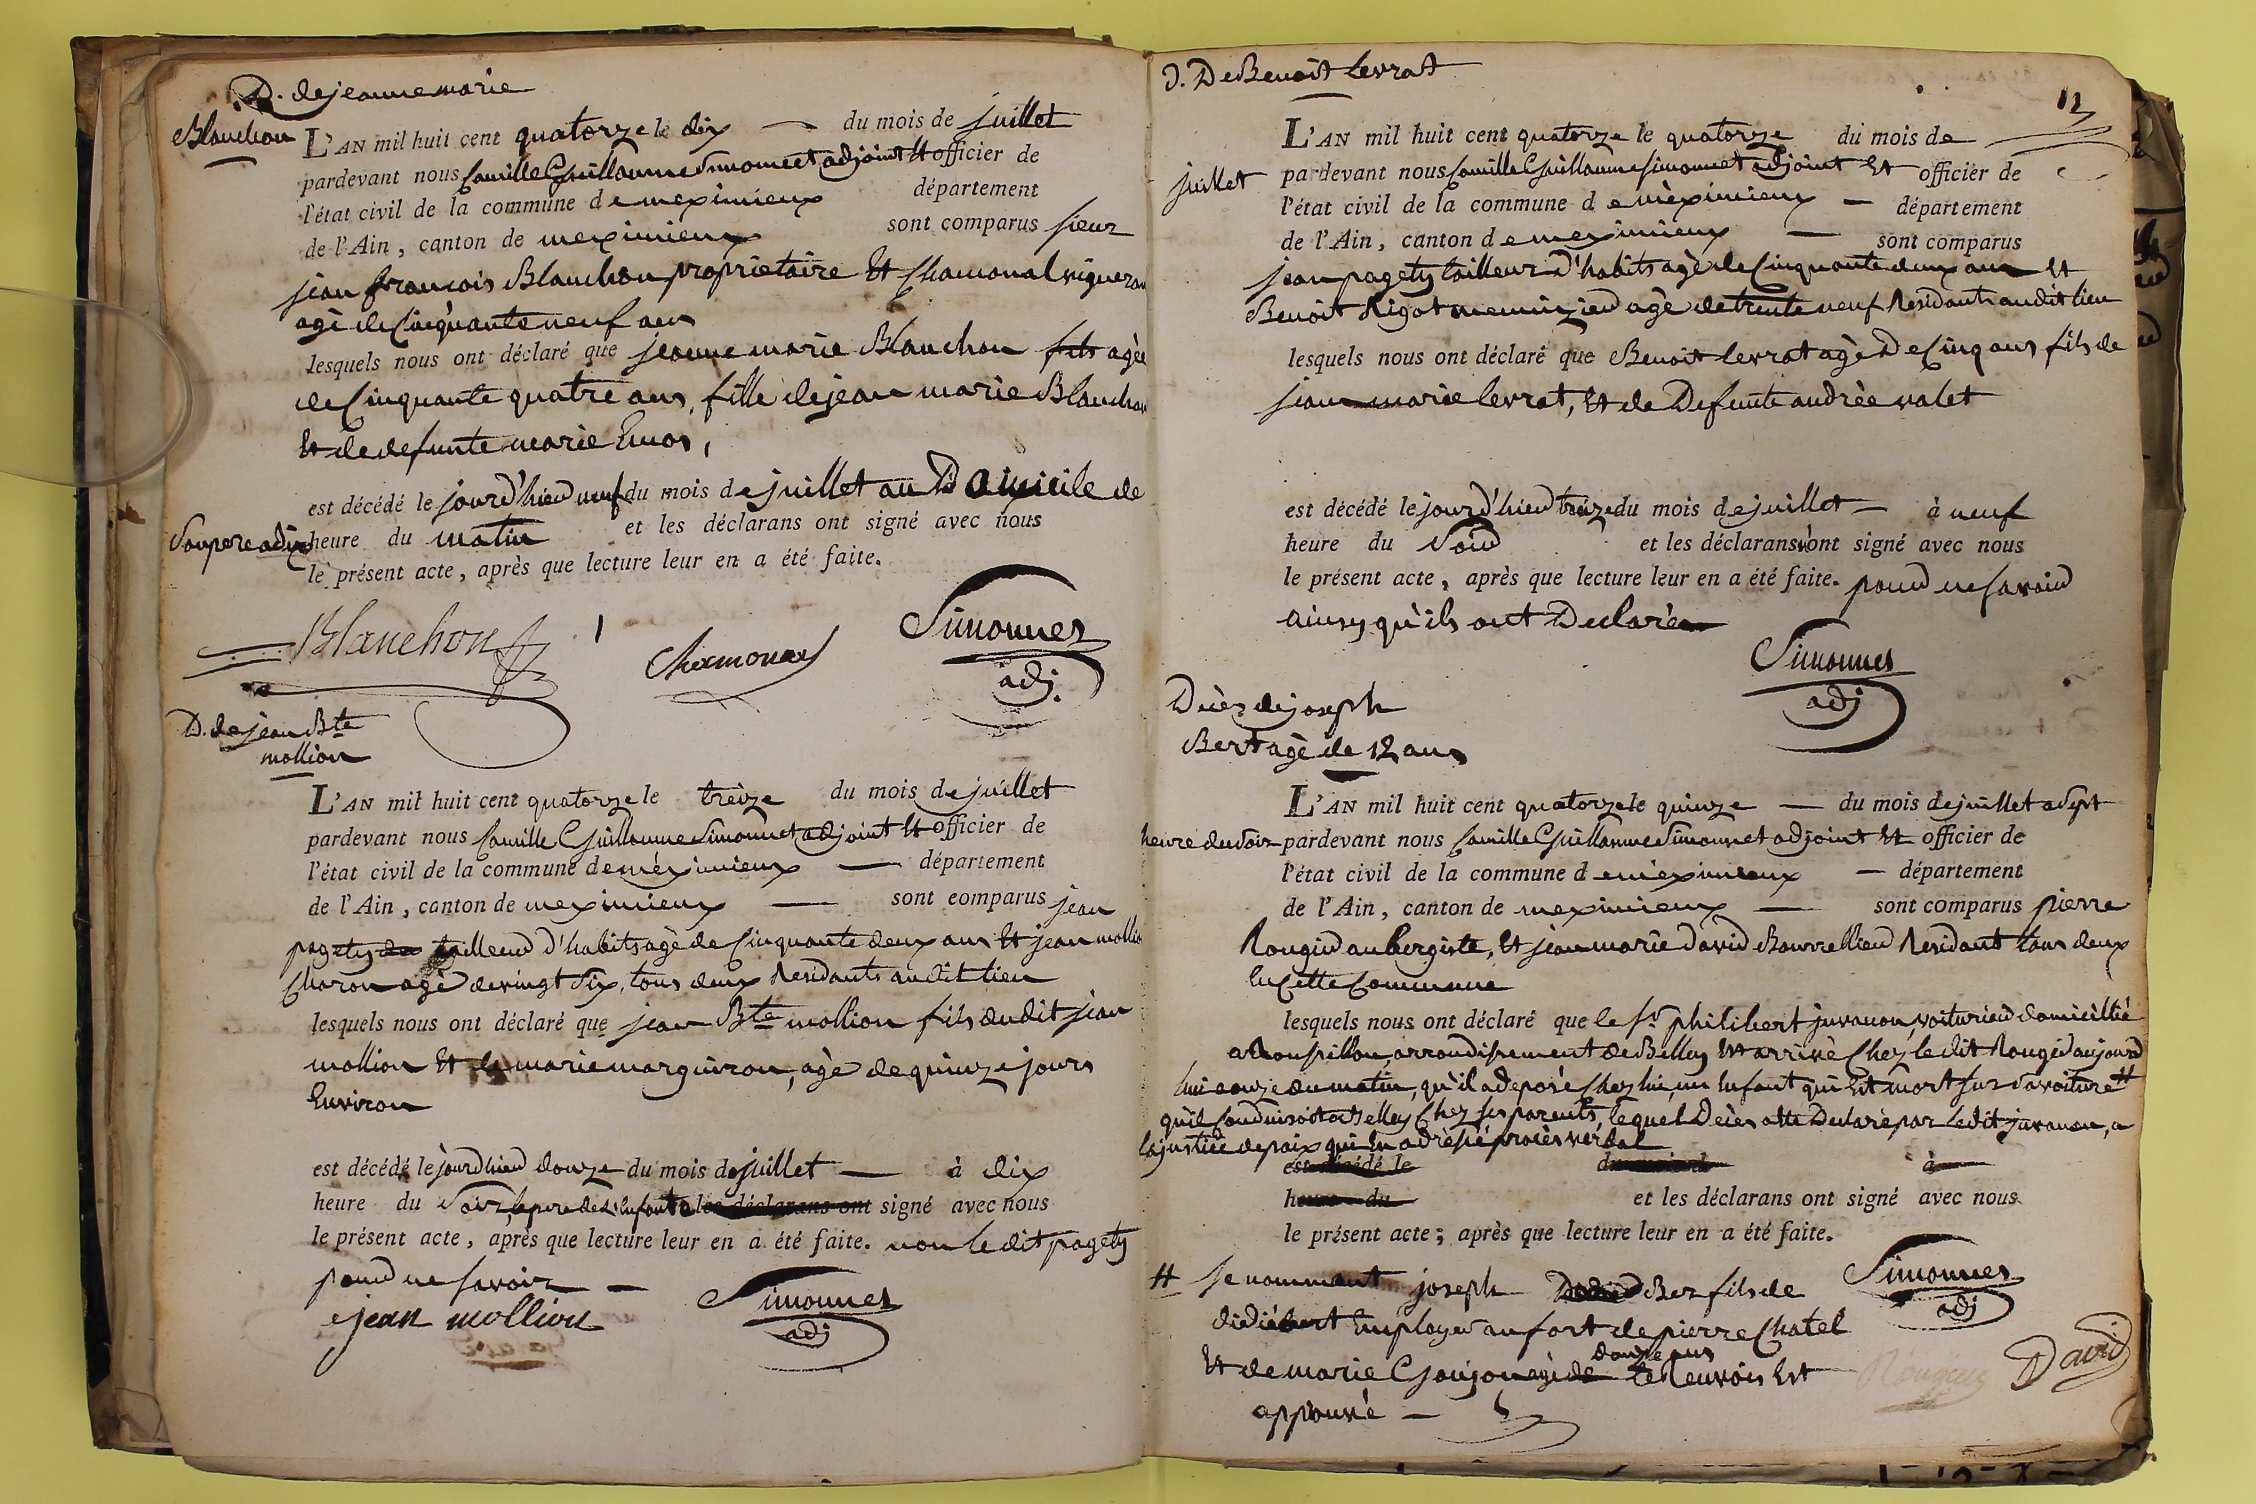 D. de jeanne marie
Blanchon
L'AN mil huit cent quatorze le dix — du mois de juillet
pardevant nous Camille Guillaume Simonnet adjoint Et officier de
l'état civil de la commune de meximieux département
de l'Ain, canton de meximieux sont comparus sieur
jean francois Blanchon propriétaire Et Chamonal vigneron
agé de Cinquante neuf ans
lesquels nous ont déclaré que jeanne marie Blanchon fils agée
de Cinquante quatre ans, fille de jean marie Blanchon
Et de defunte marie
est décédé le jourd'hier neuf du mois de juillet au Domicile de
Son pere a dix heure du matin et les déclarans ont signé avec nous
le présent acte, après que lecture leur en a été faite.
Blanchon Chamonal Simonnet
adj.
D. de jean Bte
mollion
L'AN mil huit cent quatorze le treize du mois de juillet
pardevant nous Camille Guillaume Simonnet adjoint Et officier de
l'état civil de la commune de méximieux — département
de l'Ain, canton de meximieux — sont comparus jean
pagety tailleur d'habits agé de Cinquante deux ans Et jean mollion
Charon agé de vingt Six, tous deux Residants audit lieu
lesquels nous ont déclaré que jean Bte mollion fils dudit jean
mollion Et de marie marguiron, agé de quinze jours
Environ
est décédé le jourdhier douze du mois de juillet — à dix
heure du Soir, le pere de l'enfant a les déclarans ont signé avec nous
le présent acte, après que lecture leur en a été faite. non ledit pagety
pour ne savoir —
jean mollion Simonnet
adj
D. De Benoit Levrat
12
L'AN mil huit cent quatorze le quatorze du mois de
juillet pardevant nous Camille Guillaume Simonnet adjoint Et officier de
l'état civil de la commune de méximieux — département
de l'Ain, canton de meximieux — sont comparus
jean pagety tailleur d'habits agé de Cinquante deux ans Et
Benoit Rigot menuizier agé de trente neuf Residants audit lieu
lesquels nous ont déclaré que Benoit levrat agé De Cinq ans fils de
jean marie levrat, Et de Defunte andrée valet
est décédé le jourd'hier treize du mois de juillet — à neuf
heure du Soir et les déclarans n'ont signé avec nous
le présent acte, après que lecture leur en a été faite. pour ne savoir
ainsy qu'ils ont Declarés
Simonnet
adj
Décès de joseph
Bert agé de 12 ans
L'AN mil huit cent quatorze le quinze — du mois de juillet a sept
heure du soir pardevant nous Camille Guillaume Simonnet adjoint Et officier de
l'état civil de la commune de méximieux — département
de l'Ain, canton de meximieux — sont comparus pierre
Rougier aubergiste, Et jean marie David Bourrellier Residant tous deux
En Cette Commune
lesquels nous ont déclaré que le Sr philibert juvanon, voiturier domicillié
a Rousillon, arrondissement de Belley Et arrivé Chez ledit Rougier aujourd
hui a onze du matin, qu'il a deposé Chez lui, un Enfant qui Est mort sur sa voiture #
qu'il Conduisoit a Belley Chez ses parents, lequel Décès a été Declaré par ledit juvanon, a
la justice de paix qui En a dréssé procès verbal
est décédé le du mois d à
heure du et les déclarans ont signé avec nous
le présent acte; après que lecture leur en a été faite.
# se nommant joseph Ber fils de
didié bert Employer au fort de pierre Chatel
Et de marie Goujon agé de douze ans le Renvois Est
approuvé —
Simonnet
adj
Rougier David